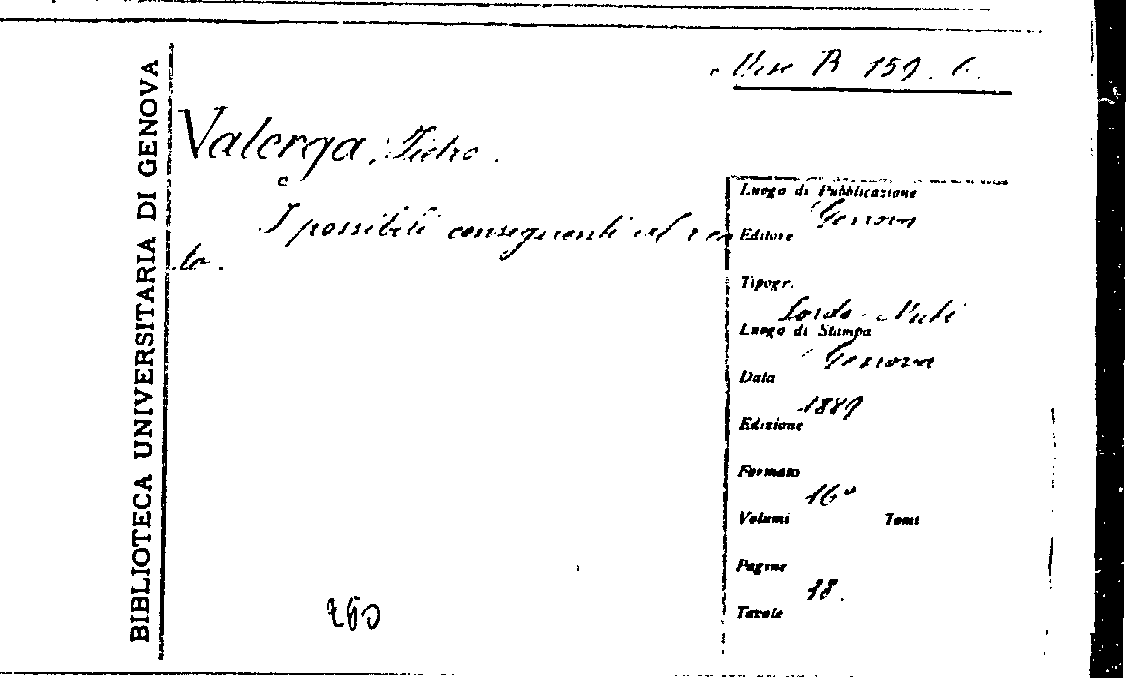 BIBLIOTECA UNIVERSITARIA DI GENOVA
Misc B 159. 6.
Valerga, Pietro.
I possibili conseguenti al rea
to.
Luogo di Pubblicazione
Genova
Editore
Tipogr.
Sordo-Muti
Luogo di Stampa
Genova
Data
1889
Edizione
Formato
16°
Volumi Tomi
Pagine
18.
Tavole
260